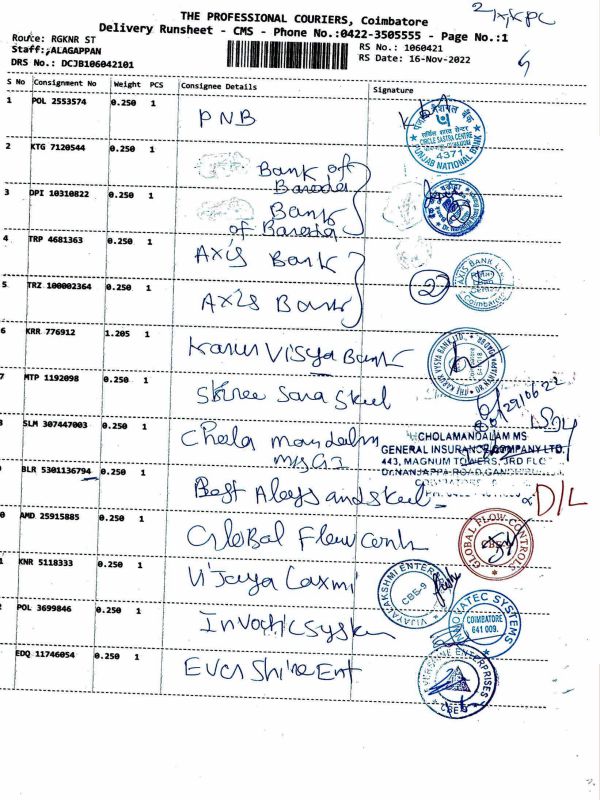 THE PROFESSIONAL COURIERS, Coimbatore
Delivery Runsheet - CMS - Phone No.:0422-3505555 - Page No.:1
Route: RGKNR ST
RS No.: 1060421
Staff:ALAGAPPAN
RS Date: 16-Nov-2022
DRS No.: DCJB106042101
S No Consignment No Weight PCS Consignee Details Signature
1 POL 2553574 0.250 1 PNB
CIRCLE SASTRA CENTRE
4371
PUNJAB NATIONAL BANK
2 KTG 7120544 0.250 1 Bank of Baroda
3 DPI 10310822 0.250 1 Bank of Baroda
4 TRP 4681363 0.250 1 Axis Bank
2
AXIS BANK
Coimbatore
5 TRZ 100002364 0.250 1 Axis Bank
6 KRR 776912 1.205 1 Karur Visya Bank
THE KARUR VYSYA BANK LTD.
7 MTP 1192098 0.250 1 Shree Sara Steel
8 SLM 307447003 0.250 1 Chola mandalm
MS G1
CHOLAMANDALAM MS
GENERAL INSURANCE COMPANY LTD.
443, MAGNUM TOWERS, 3RD FLO
Dr.NANJAPPA ROAD,
BLR 5301136794 0.250 1 Best Aloys and Steel
D/L
0 AMD 25915885 0.250 1 Global Flow Cont
GLOBAL FLOW-CONTROLS
CBE
1 KNR 5118333 0.250 1 Vijaya Laxmi
VIJAYALAKSHMI ENTER
CBE-9
2 POL 3699846 0.250 1
INNOVATEC SYSTEMS
COIMBATORE
641 009.
EDQ 11746054 0.250 1 Ever Shine Ent
EVERSHINE ENTERPRISES